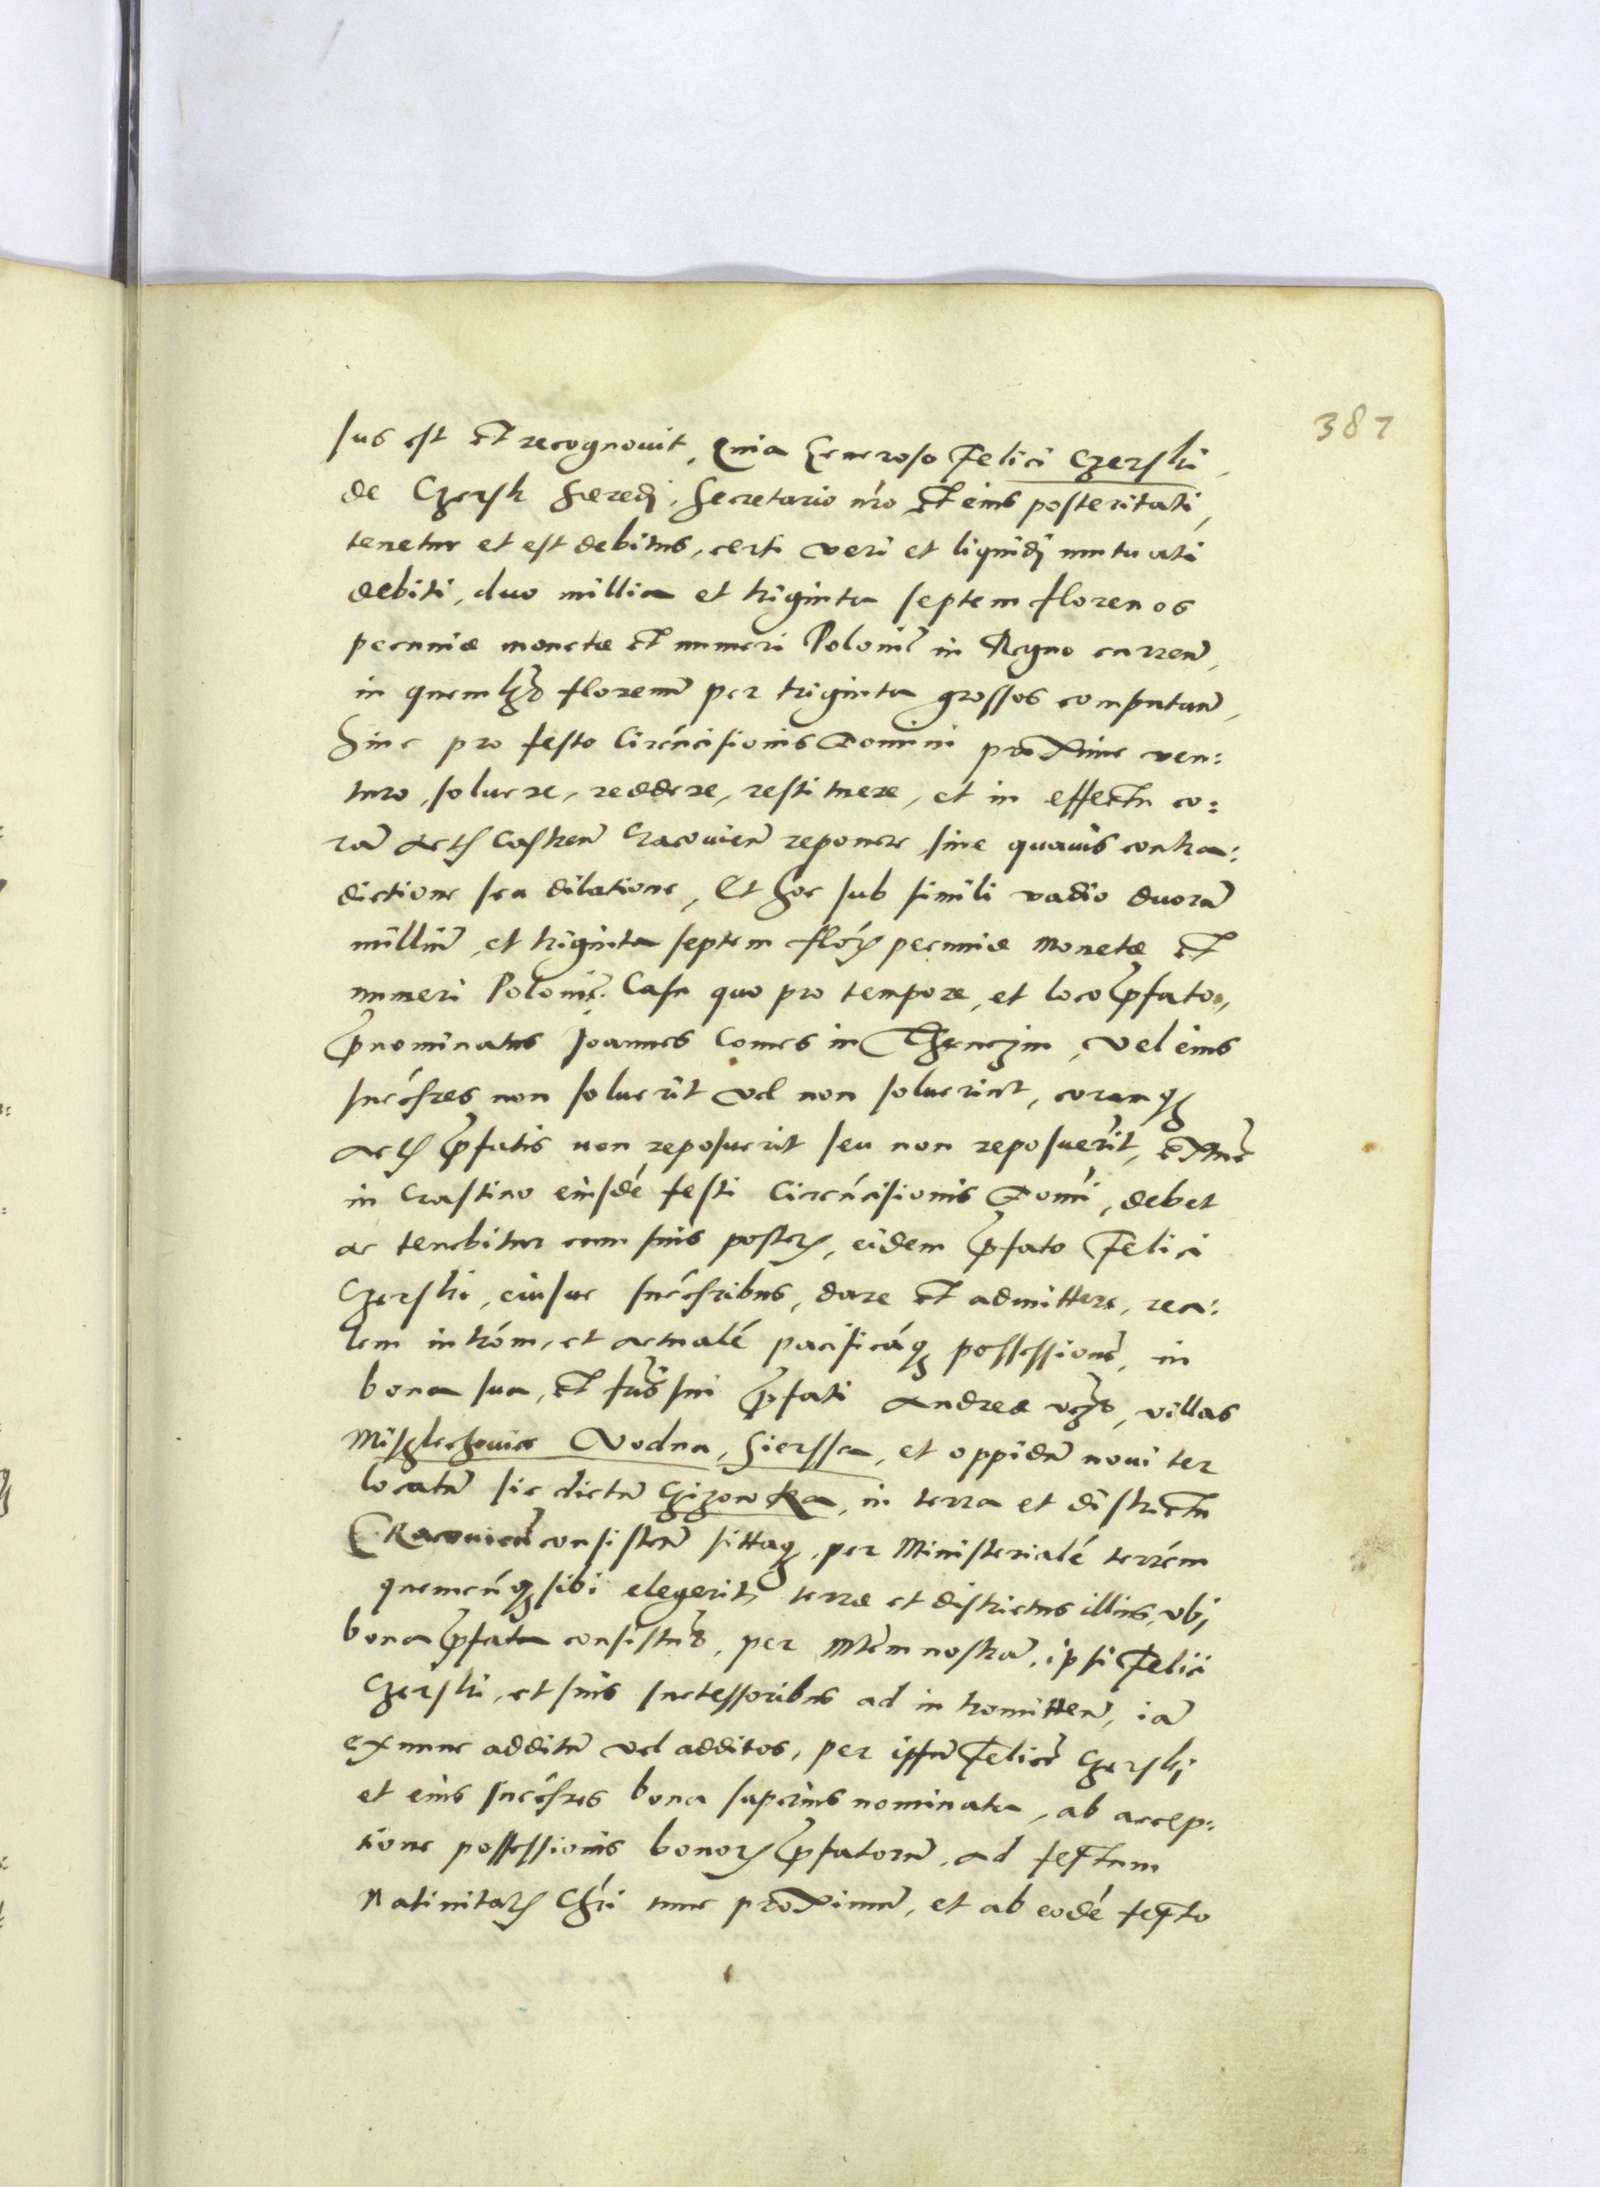 387
sus est et recognovit, Quia Generoso Felici Czerski,
de Czersk hæredi, Secretario nro et eius posteritati,
tenetur et est debitus, certi veri et liquidi mutuati
debiti, duo millia et triginta septem florenos
pecuniæ monetæ et numeri Poloniĉ in Regno curreñ,
in quemlꝫt florenũ per triginta grossos computañ,
hinc pro festo Circũcisionis Domini proxime ven:
turo, soluere, reddere, restituere, et in effectu co:
rã actis Castreñ Cracovieñ reponere sine quavis contra:
dictione seu dilatione, Et hoc sub simili vadio duorũ
milliũ, et triginta septem flór pecuniæ monetæ et
numeri Poloniĉ. Casu quo pro tempore, et loco pfato,
pnominatus Joannes Comes in Thenczin, vel eius
succ̃sres non soluerit vel non soluerint, coramqꝫ
actis pfatis non reposuerit seu non reposuer̃it, extũc
in crastino eiusdẽ festi Circũcisionis Domĩ, debet
ac tenebitur cum suis posteris, eidem pfato Felici
Czerski, eiusue succ̃sribus, dare et admittere, rea:
lem intróm, et actualẽ pacificãqꝫ possessionẽ, in
bona sua, et frĩs sui pfati Andreæ vcꝫt, villas
Miszlechovice Vodna, Siersza, et oppidũ noviter
locatũ sic dictũ Czizowka, in terra et districtu
Cracovieñ consisteñ sittaqꝫ, per Ministerialẽ terrém
quemcũqꝫ sibi elegerit, terræ et districtus illius, ubi
bona pfata consistũt, per Mtem nostrã, ipsi Felici
Czerski, et suis successoribus ad intromitteñ, iã
exnunc additũ vel additos, per ipsũ Felicẽ Czerski
et eius succ̃sres bona superius nominata, ab accep:
tione possessionis bonorꝫ pfatorũ, ad festum
Nativitatis Chri tunc proximũ, et ab eodẽ festo